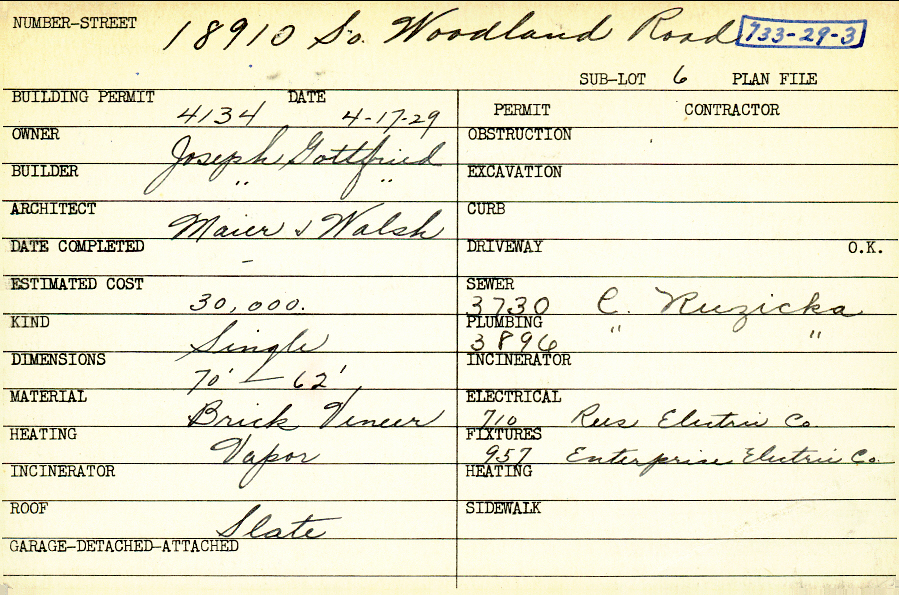 NUMBER-STREET 18910 So. Woodland Road 733-29-3
SUB-LOT 6 PLAN FILE
BUILDING PERMIT 4134 DATE 4-17-29
OWNER Joseph Gottfried
BUILDER " "
ARCHITECT Maier & Walsh
DATE COMPLETED -
ESTIMATED COST 30,000.
KIND Single
DIMENSIONS 70' — 62'
MATERIAL Brick Veneer
HEATING Vapor
INCINERATOR
ROOF Slate
GARAGE-DETACHED-ATTACHED
PERMIT CONTRACTOR
OBSTRUCTION
EXCAVATION
CURB
DRIVEWAY O.K.
SEWER
3730 C. Ruzicka
PLUMBING
3896 " "
INCINERATOR
ELECTRICAL
710 Rees Electric Co.
FIXTURES
957 Enterprise Electric Co.
HEATING
SIDEWALK